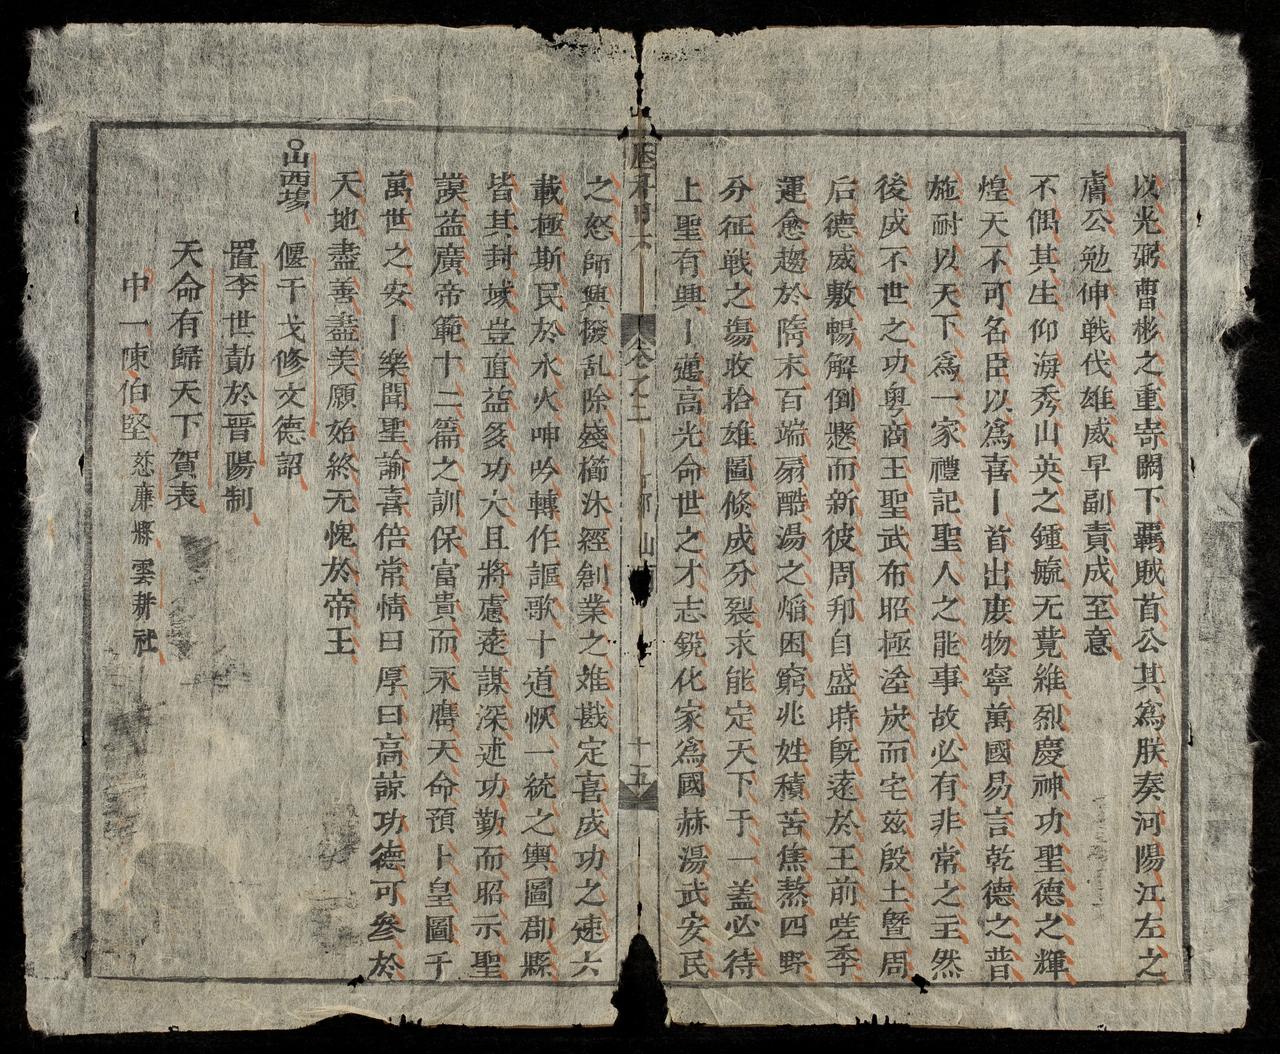 以光弼曹彬之重寄閫下覊賊首公其爲朕奏河陽江左之
膚公勉伸戦伐雄威早副責成至意
不偶其生仰海秀山英之鍾毓无竟維烈慶神功聖德之輝
煌天不可名臣以爲喜丨首出庻物寧萬國易言乾德之普
施耐以天下爲一家禮記聖人之能事故必有非常之主然
後成不世之功粤商王聖武布昭極塗炭而宅兹殷土曁周
后德威敷暢解倒懸而新彼周邦自盛時旣逺於王前嗟季
運愈趨於隋末百端扇酷湯之熖困窮兆姓積苦焦熬四野
分征戦之塲收拾雄圖倐成分裂求能定天下于一盖必待
上聖有興丨邁高光命世之才志鋭化家爲國赫湯武安民
卷之二
山
十五
之怒師興撥乱除殘櫛沐經創業之难戡定喜成功之速六
載極斯民於水火呻吟轉作謳歌十道恢一統之輿圖郡縣
皆其封域豈直益多功大且將慮逺謀深述功勤而昭示聖
謨益廣帝範十二篇之訓保富貴而永膺天命預卜皇圖千
萬世之安丨樂聞聖諭喜倍常情曰厚曰高諒功德可參於
天地盡善盡美願始終无愧於帝王
山西塲
偃干戈修文德詔
置李世勣於晋陽制
天命有歸天下賀表
中一陳伯堅慈廉將雲耕社